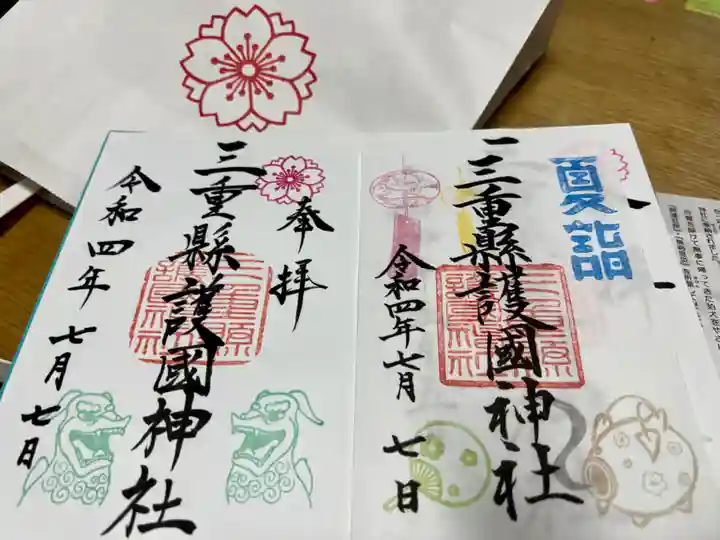 奉拝
三重縣護國神社
令和四年 七月 七日
夏詣
三重縣護國神社
令和四年七月 七日